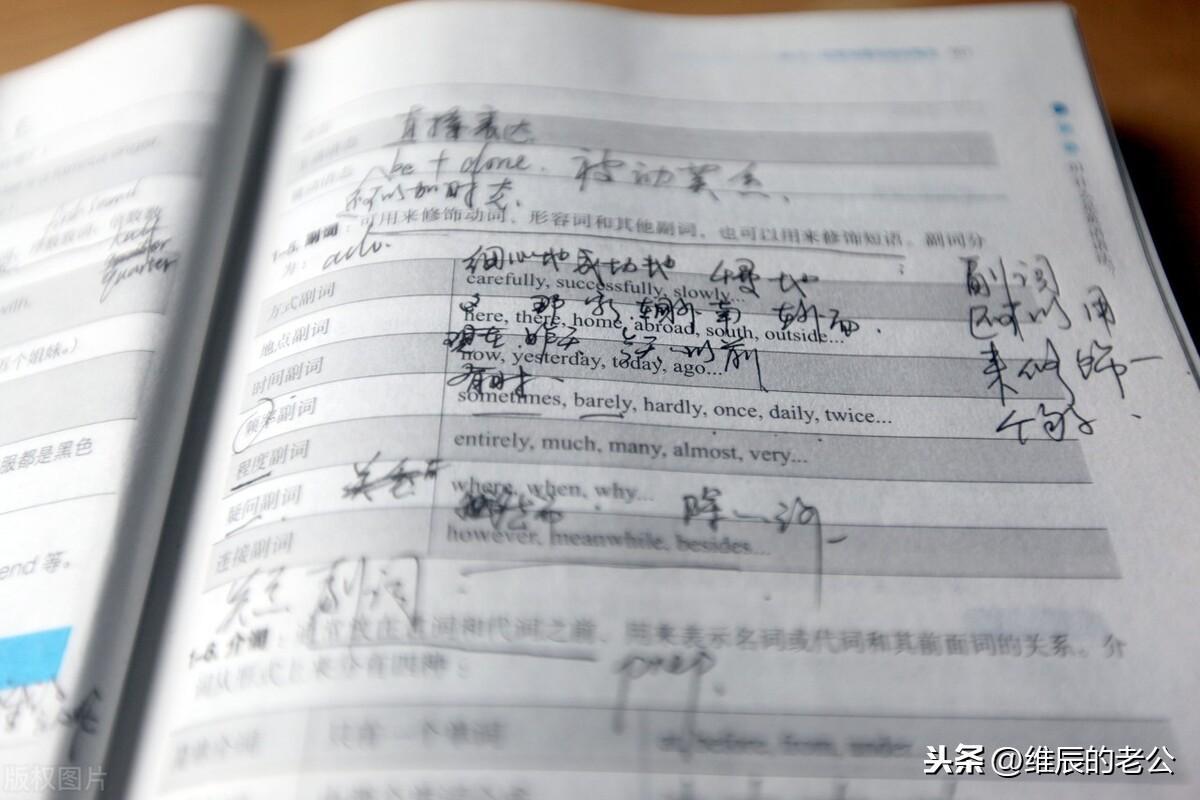 直接表达
be + done. 被动
可以加时态.
1-5. 副词：可用来修饰动词、形容词和其他副词，也可以用来修饰短语。副词分
为： adv.
细心地 成功地 慢地
方式副词 carefully, successfully, slowly...
那 家 南 外面.
地点副词 here, there, home, abroad, south, outside...
现在 昨天 今天 以前
时间副词 now, yesterday, today, ago...
有时
频率副词 sometimes, barely, hardly, once, daily, twice...
程度副词 entirely, much, many, almost, very...
疑问副词 where, when, why...
连接副词 however, meanwhile, besides...
副词
副词
可以用
来修饰一
个句子.
1-6. 介词：通常放在名词和代词之前，用来表示名词或代词和其前面词的关系。介
词从形式上来分有四种：
prep.
只有一个单词 at, before, from, under
half
quarter
五个姐妹。）
服都是黑色
end 等。
版权图片
头条 @维辰的老公